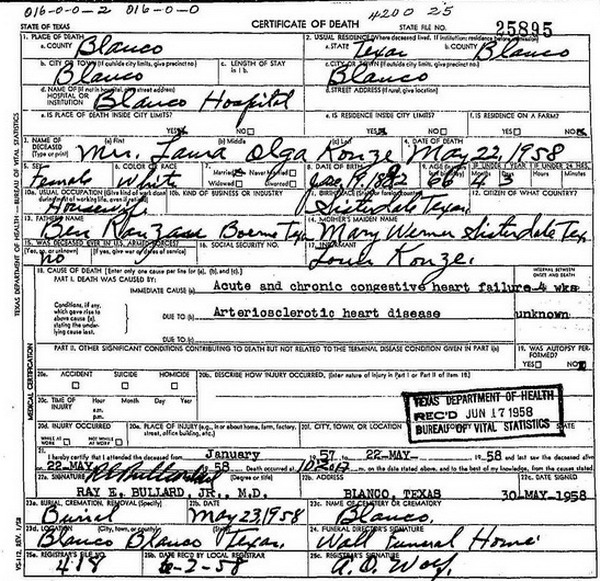 016-0-0-2 016-0-0 4200 25
STATE OF TEXAS CERTIFICATE OF DEATH STATE FILE NO. 25895
1. PLACE OF DEATH 2. USUAL RESIDENCE (Where deceased lived. If institution: residence before admission)
a. COUNTY Blanco a. STATE Texas b. COUNTY Blanco
b. CITY OR TOWN (If outside city limits, give precinct no.) c. LENGTH OF STAY in 1 b. c. CITY OR TOWN (If outside city limits, give precinct no.)
Blanco Blanco
d. NAME OF (If not in hospital, give street address) HOSPITAL OR INSTITUTION Blanco Hospital d. STREET ADDRESS (If rural, give location)
e. IS PLACE OF DEATH INSIDE CITY LIMITS? e. IS RESIDENCE INSIDE CITY LIMITS? f. IS RESIDENCE ON A FARM?
YES NO YES NO YES NO
3. NAME OF DECEASED (Type or print) (a) First (b) Middle (c) Last 4. DATE OF DEATH
Mrs. Laura Olga Konze May 22, 1958
5. SEX 6. COLOR OR RACE 7. Married Never Married Widowed Divorced 8. DATE OF BIRTH 9. AGE IF UNDER 1 YEAR IF UNDER 24 HRS.
Female White 66 4 Hours Minutes
10a. USUAL OCCUPATION (Give kind of work done during most of working life, even if retired) 10b. KIND OF BUSINESS OR INDUSTRY 12. CITIZEN OF WHAT COUNTRY?
Housewife Sisterdale Texas
13. FATHER'S NAME 14. MOTHER'S MAIDEN NAME
Ben Boerne Tex Mary Werner Sisterdale Tex
15. WAS DECEASED EVER IN U.S. ARMED FORCES? 16. SOCIAL SECURITY NO. 17. INFORMANT
(Yes, no, or unknown) (If yes, give war or dates of service)
no Konze
18. CAUSE OF DEATH [Enter only one cause per line for (a), (b), and (c).] INTERVAL BETWEEN ONSET AND DEATH
PART I. DEATH WAS CAUSED BY:
IMMEDIATE CAUSE (a) Acute and chronic congestive heart failure 4 wks
Conditions, if any, which gave rise to above cause (a), stating the underlying cause last.
DUE TO (b) Arteriosclerotic heart disease unknown
DUE TO (c)
PART II. OTHER SIGNIFICANT CONDITIONS CONTRIBUTING TO DEATH BUT NOT RELATED TO THE TERMINAL DISEASE CONDITION GIVEN IN PART I(a) 19. WAS AUTOPSY PERFORMED?
YES NO
20a. ACCIDENT SUICIDE HOMICIDE 20b. DESCRIBE HOW INJURY OCCURRED. (Enter nature of injury in Part I or Part II of item 18.)
20c. TIME OF INJURY Hour Month Day Year
a.m.
p.m.
TEXAS DEPARTMENT OF HEALTH
REC'D JUN 17 1958
BUREAU OF VITAL STATISTICS
20d. INJURY OCCURRED 20e. PLACE OF INJURY (e.g., in or about home, farm, factory, street, office building, etc.) 20f. CITY, TOWN, OR LOCATION STATE
WHILE AT WORK NOT WHILE AT WORK
21. I hereby certify that I attended the deceased from January 1957 to 22-MAY- 1958 and last saw the deceased alive
22-MAY 58 Death occurred at on the date stated above, and to the best of my knowledge, from the causes stated.
22a. SIGNATURE (Degree or title) 22b. ADDRESS 22c. DATE SIGNED
RAY E. BULLARD, JR., M.D. BLANCO, TEXAS 30-MAY-1958
23a. BURIAL, CREMATION, REMOVAL (Specify) 23b. DATE 23c. NAME OF CEMETERY OR CREMATORY
Burial May 23, 1958 Blanco
23d. LOCATION (City, town, or county) (State) 24. FUNERAL DIRECTOR'S SIGNATURE
Blanco Blanco Texas Funeral Home
25a. REGISTRAR'S FILE NO. 25b. DATE REC'D BY LOCAL REGISTRAR 25c. REGISTRAR'S SIGNATURE
418 6-2-58
TEXAS DEPARTMENT OF HEALTH — BUREAU OF VITAL STATISTICS
MEDICAL CERTIFICATION
VS-112, REV. 1/58